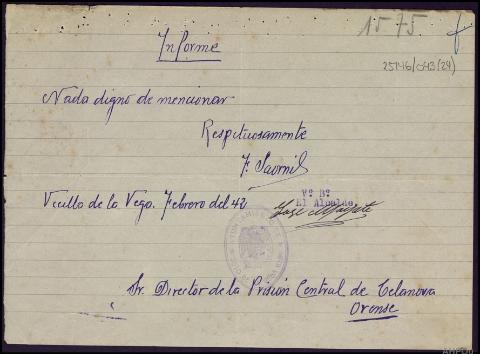 1575
25746/043(24)
Informe
Nada digno de mencionar
Respetuosamente
F. Saornil
Vº Bº
El Alcalde
Vecilla de la Vega. Febrero del 42
José
Sr. Director de la Prisión Central de Celanova
Orense